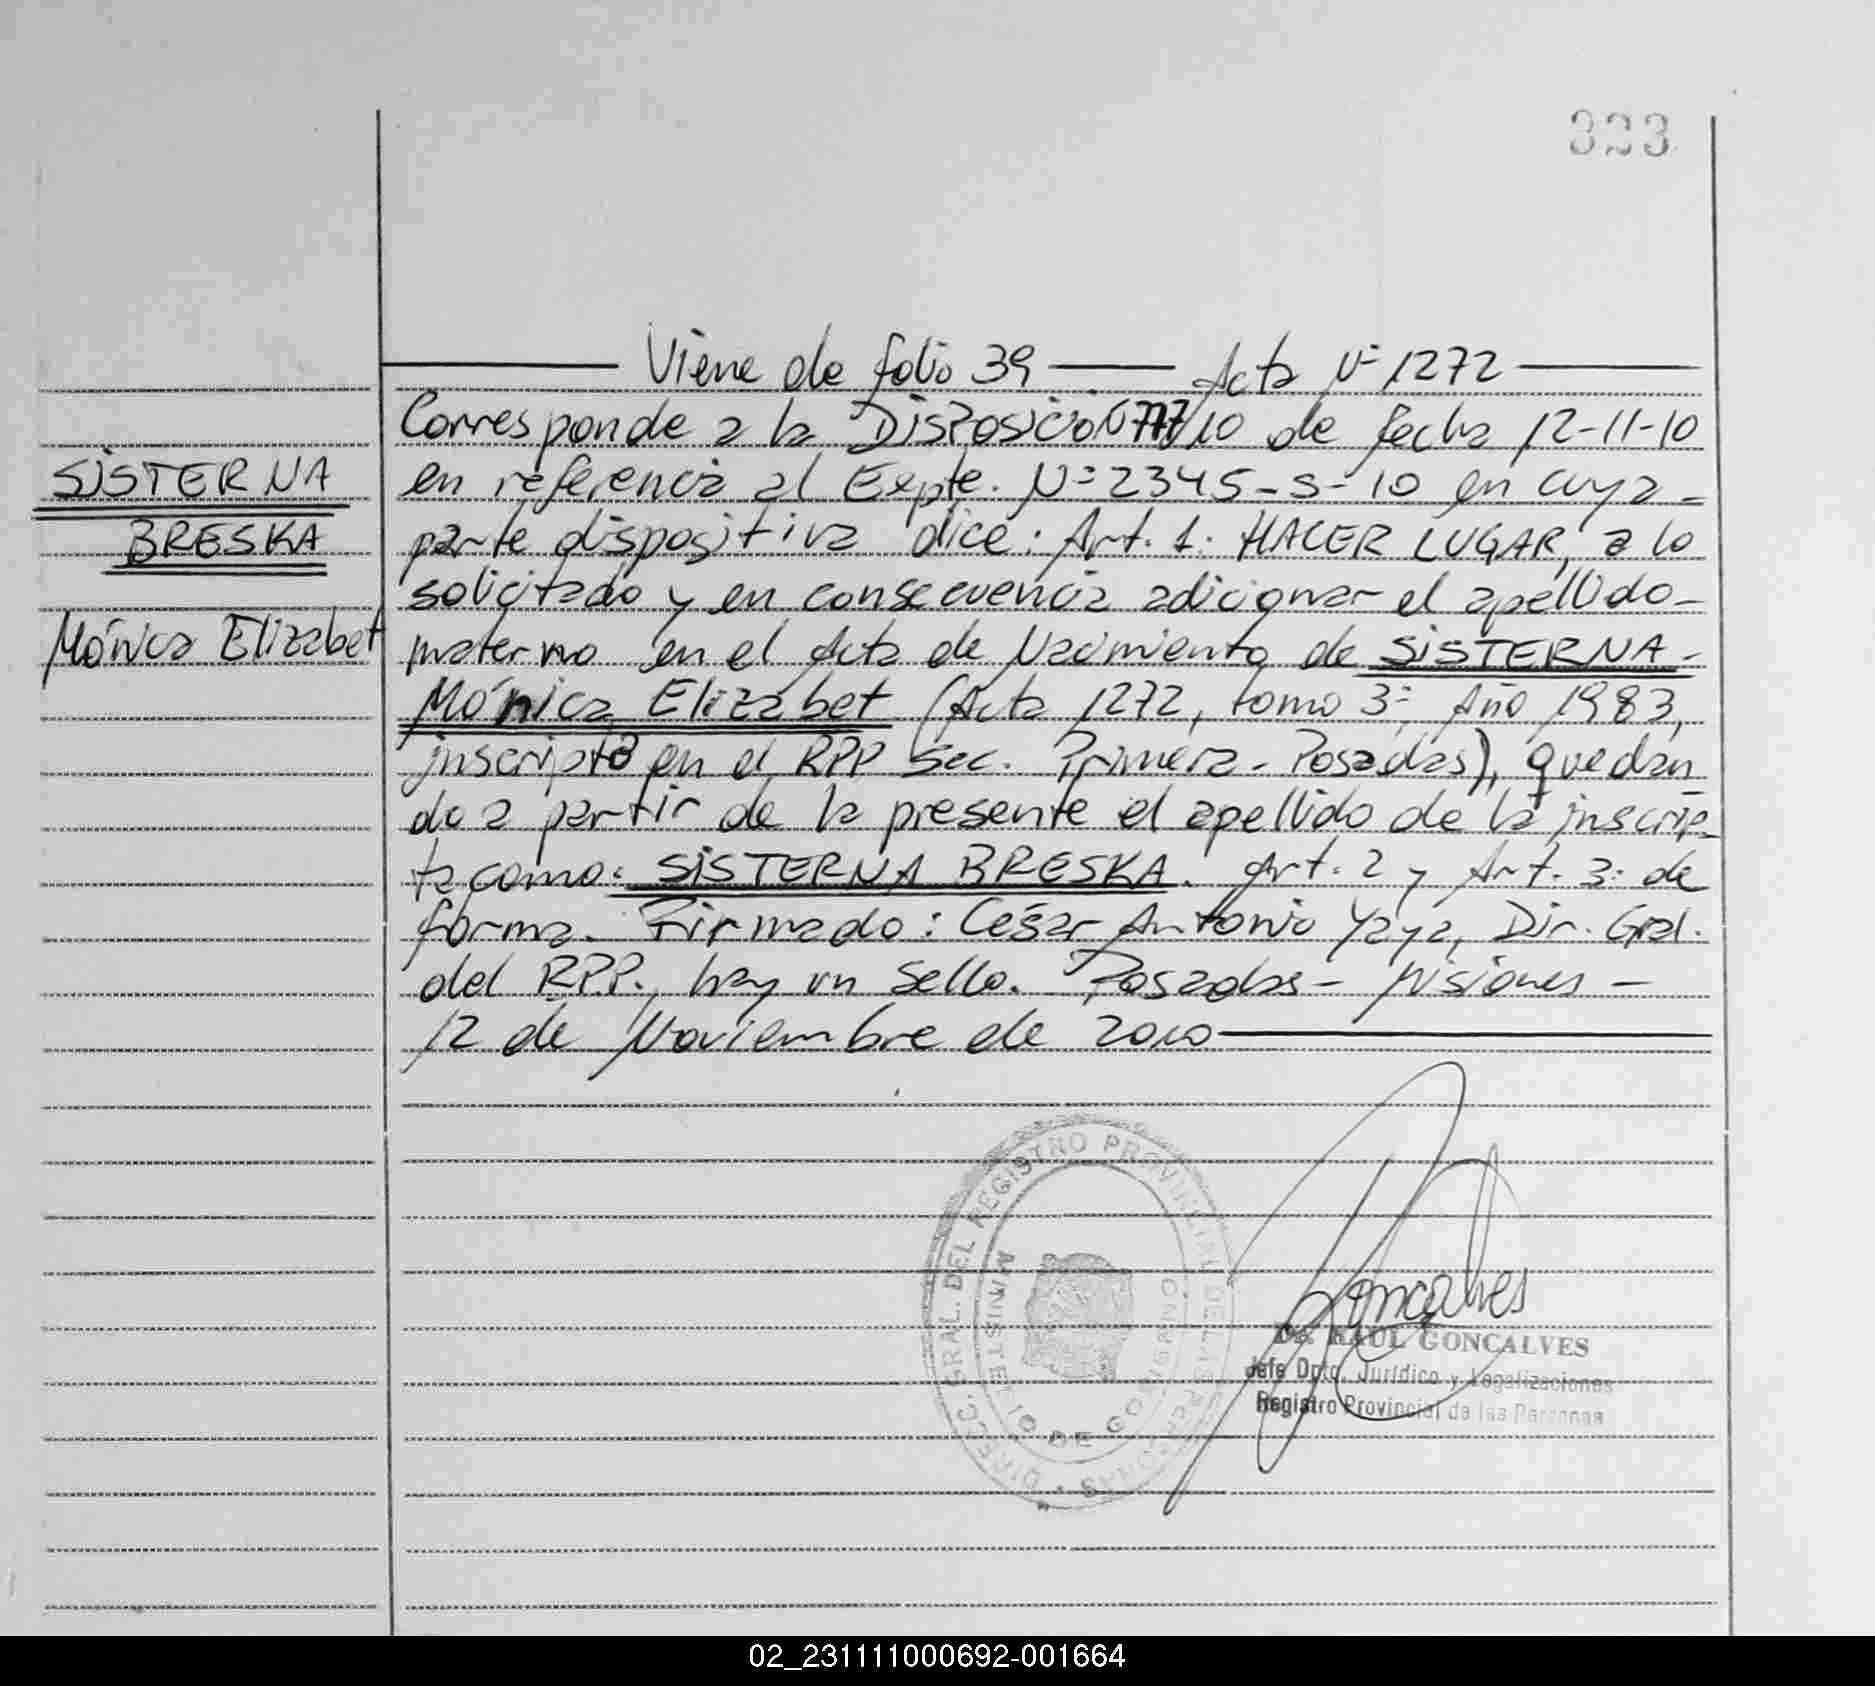 323
Viene de folio 39 — Acta Nº 1272
SISTERNA
BRESKA
Mónica Elizabet
Corresponde a la Disposición 777/10 de fecha 12-11-10
en referencia al Expte. Nº 2345-S-10 en cuya -
parte dispositiva dice: Art. 1: HACER LUGAR, a lo
solicitado y en consecuencia adicionar el apellido -
materno en el Acta de Nacimiento de SISTERNA -
Mónica Elizabet (Acta 1272, tomo 3º, Año 1983,
inscripta en el RPP Sec. Primera - Posadas), quedan
do a partir de la presente el apellido de la inscrip-
ta como: SISTERNA BRESKA. Art. 2 y Art. 3: de
forma. Firmado: César Antonio Yaya, Dir. Gral.
del R.P.P., hay un sello. Posadas - Misiones -
12 de Noviembre de 2010
DIREC. GRAL. DEL REGISTRO PROVINCIAL DE LAS PERSONAS
MINISTERIO DE GOBIERNO
Goncalves
Dr. RAUL GONCALVES
Jefe Dpto. Jurídico y Legalizaciones
Registro Provincial de las Personas
02_231111000692-001664